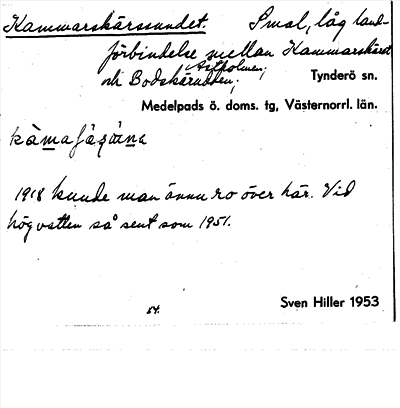 Kammarskärssundet. Smal, låg land-
förbindelse mellan Kammarskäret
och Bodskärudden; Tynderö sn.
Medelpads ö. doms. tg, Västernorrl. län.
1918 kunde man ännu ro över här. Vid
högvatten så sent som 1951.
54.
Sven Hiller 1953